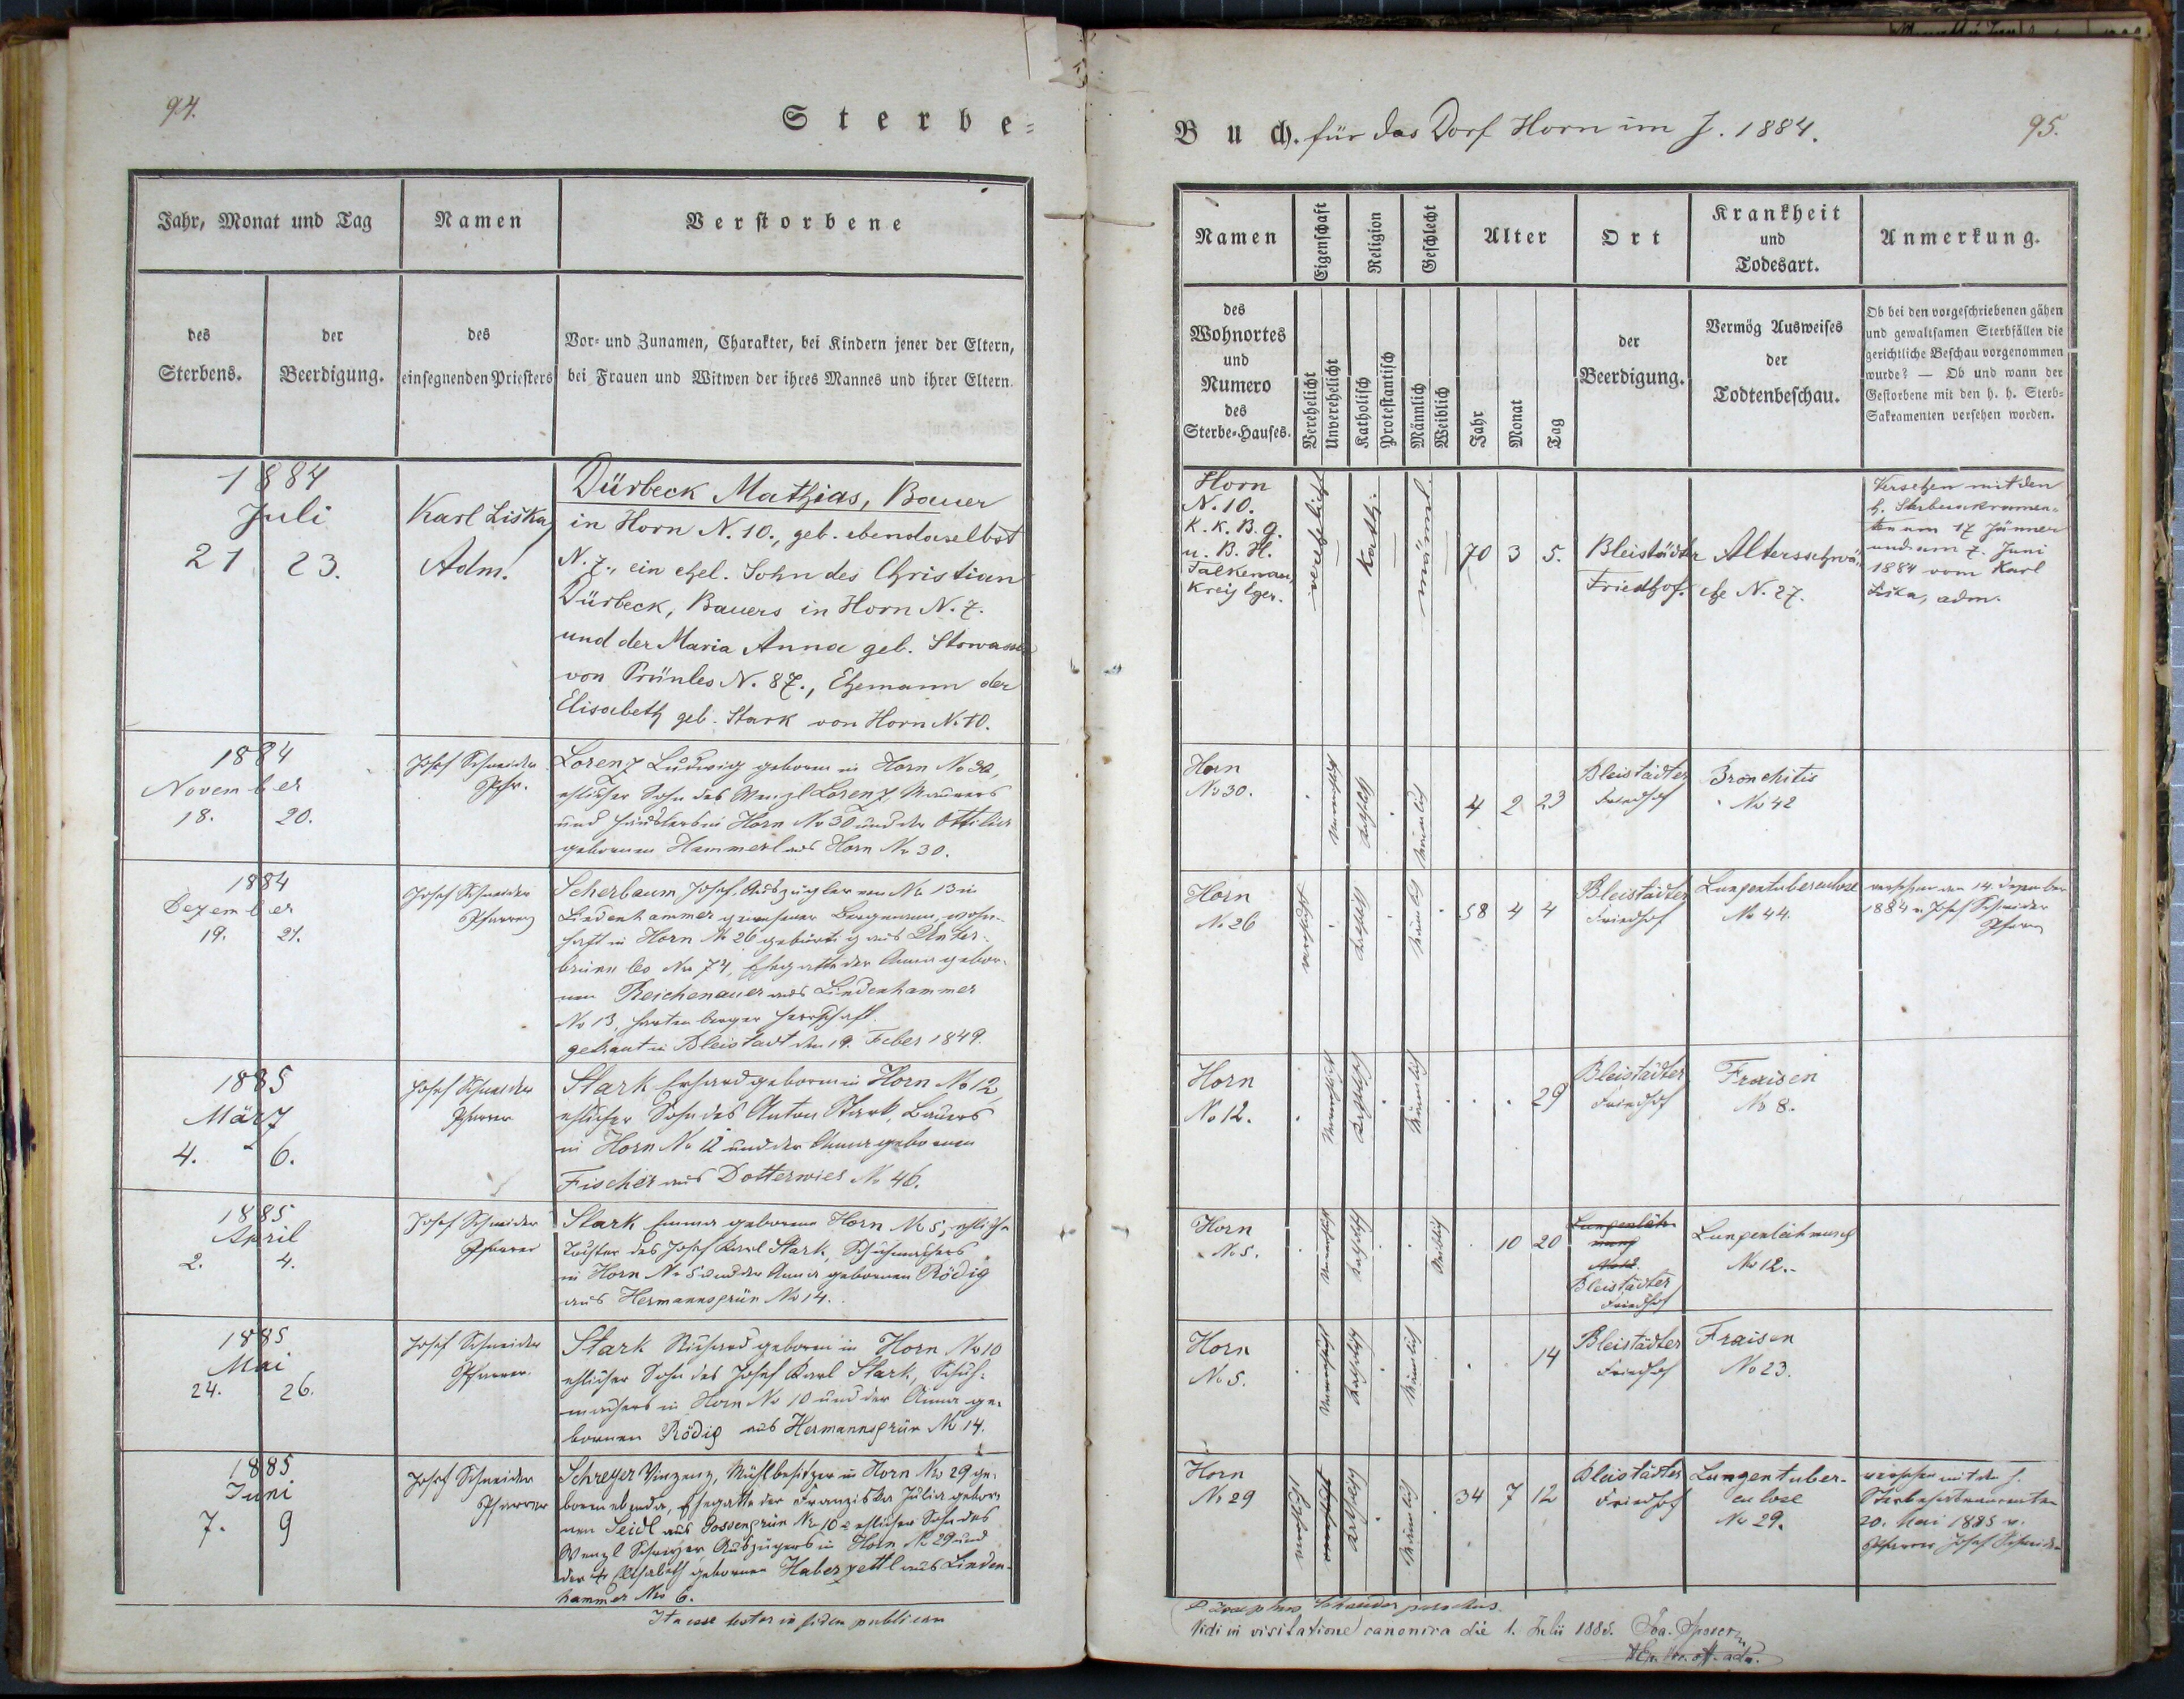 94.
Sterbe=
Jahr, Monat und Tag
Namen
Verstorbene
des
Sterbens.
der
Beerdigung.
des
einsegnenden Priesters
Vor= und Zunamen, Charakter, bei Kindern jener der Eltern,
bei Frauen und Witwen der ihres Mannes und ihrer Eltern.
1884
Juli
21 23.
Karl Liška,
Adm.
Dürbeck Mathias, Bauer
in Horn N. 10., geb. ebendaselbst
N. 7., ein ehel. Sohn des Christian
Dürbeck, Bauers in Horn N. 7.
und der Maria Anna geb. Stowasser
von Prünles N. 87., Ehemann der
Elisabeth geb. Stark von Horn N. 10.
1884
November
18. 20.
Josef Schneider
Pfr.
Lorenz Ludwig geboren in Horn No 30,
ehlicher Sohn des Wenzl Lorenz, Maurers
und Häuslers in Horn No 30 und der Ottilia
gebornen Hammerl aus Horn No 30.
1884
Dezember
19. 21.
Josef Schneider
Pfarrer
Scherbaum, Josef, Auszügler von No 13 in
Lindenhammer gewesener Bergmann, wohn-
haft in Horn No 26 gebürtig aus Unter-
brünnles No 74, Ehegatte der Anna gebor-
nen Reichenauer aus Lindenhammer
No 13, Hartenberger Herrschaft.
getraut in Bleistadt den 19. Feber 1849.
1885
März
4. 6.
Josef Schneider
Pfarrer
Stark Erhard geboren in Horn No 12,
ehlicher Sohn des Anton Stark, Bauers
in Horn No 12 und der Anna gebornen
Fischer aus Dotterwies No 46.
1885
April
2. 4.
Josef Schneider
Pfarrer
Stark Emma geboren Horn No 5, ehliche
Tochter des Josef Karl Stark, Schuhmachers
in Horn No 5 und der Anna gebornen Rödig
aus Hermannsgrün No 14.
1885
Mai
24. 26.
Josef Schneider
Pfarrer.
Stark Richard geboren in Horn No 10
ehlicher Sohn des Josef Karl Stark, Schuh-
machers in Horn No 10 und der Anna ge-
bornen Rödig aus Hermannsgrün No 14.
1885
Juni
7. 9
Josef Schneider
Pfarrer
Schreyer Vinzenz, Mühlbesitzer in Horn No 29 ge-
boren ebenda, Ehegatte der Franziska Julia gebor-
nen Seidl aus Gossengrün No 102 ehlicher Sohn des
Wenzl Schreyer, Auszügers in Horn No 29 und
der Elisabeth gebornen Haberzettl aus Linden-
hammer No 6.
Ita esse testor in fidem publicam
Buch. für das Dorf Horn im J. 1884.
95.
Namen
Eigenschaft
Religion
Geschlecht
Alter
Ort
Krankheit
und
Todesart.
Anmerkung.
des
Wohnortes
und
Numero
des
Sterbe=Hauses.
Verehelicht
Unverehelicht
Katholisch
Protestantisch
Männlich
Weiblich
Jahr
Monat
Tag
der
Beerdigung.
Vermög Ausweises
der
Todtenbeschau.
Ob bei den vorgeschriebenen gähen
und gewaltsamen Sterbfällen die
gerichtliche Beschau vorgenommen
wurde? — Ob und wann der
Gestorbene mit den h. h. Sterb=
Sakramenten versehen worden.
Horn
N. 10.
K. K. B. g.
u. B. H.
Falkenau,
verehelicht
Kath.
männl.
70 3 5.
Bleistädter
Friedhof.
Altersschwä-
che N. 27.
Versehen mit den
h. Sterbesakramen-
ten am 17 Jänner
und am 7. Juni
1884 vom Karl
Liška, adm.
Horn
No 30.
unverehelicht
katholisch
männlich
4 2 23
Bleistädter
Friedhof
Bronchitis
No 42
Horn
No 26
verehelicht
katholisch
männlich
58 4 4
Bleistädter
Friedhof
Lungentuberculose
No 44.
versehen am 14. Dezember
1884 v. Josef Schneider
Pfarrer
Horn
No 12.
unverehelicht
katholisch
männlich
29
Bleistädter
Friedhof
Fraisen
No 8.
Horn
No 5.
unverehelicht
katholisch
weiblich
10 20
Lungenläh-
mung
No 12.
Bleistädter
Friedhof
Lungenlähmung
No 12.
Horn
No 5.
unverehelicht
katholisch
männlich
14
Bleistädter
Friedhof
Fraisen
No 23.
Horn
No 29
verehelicht
unverehelicht
katholisch
männlich
34 7 12
Bleistädter
Friedhof
Lungentuber-
culose
No 29.
versehen mit den h.
Sterbesakramenten
20. Mai 1885 v.
Pfarrer Josef Schneider
P. Josephus Schneider parochus.
Vidi in visitatione canonica die 1. Julii 1885.